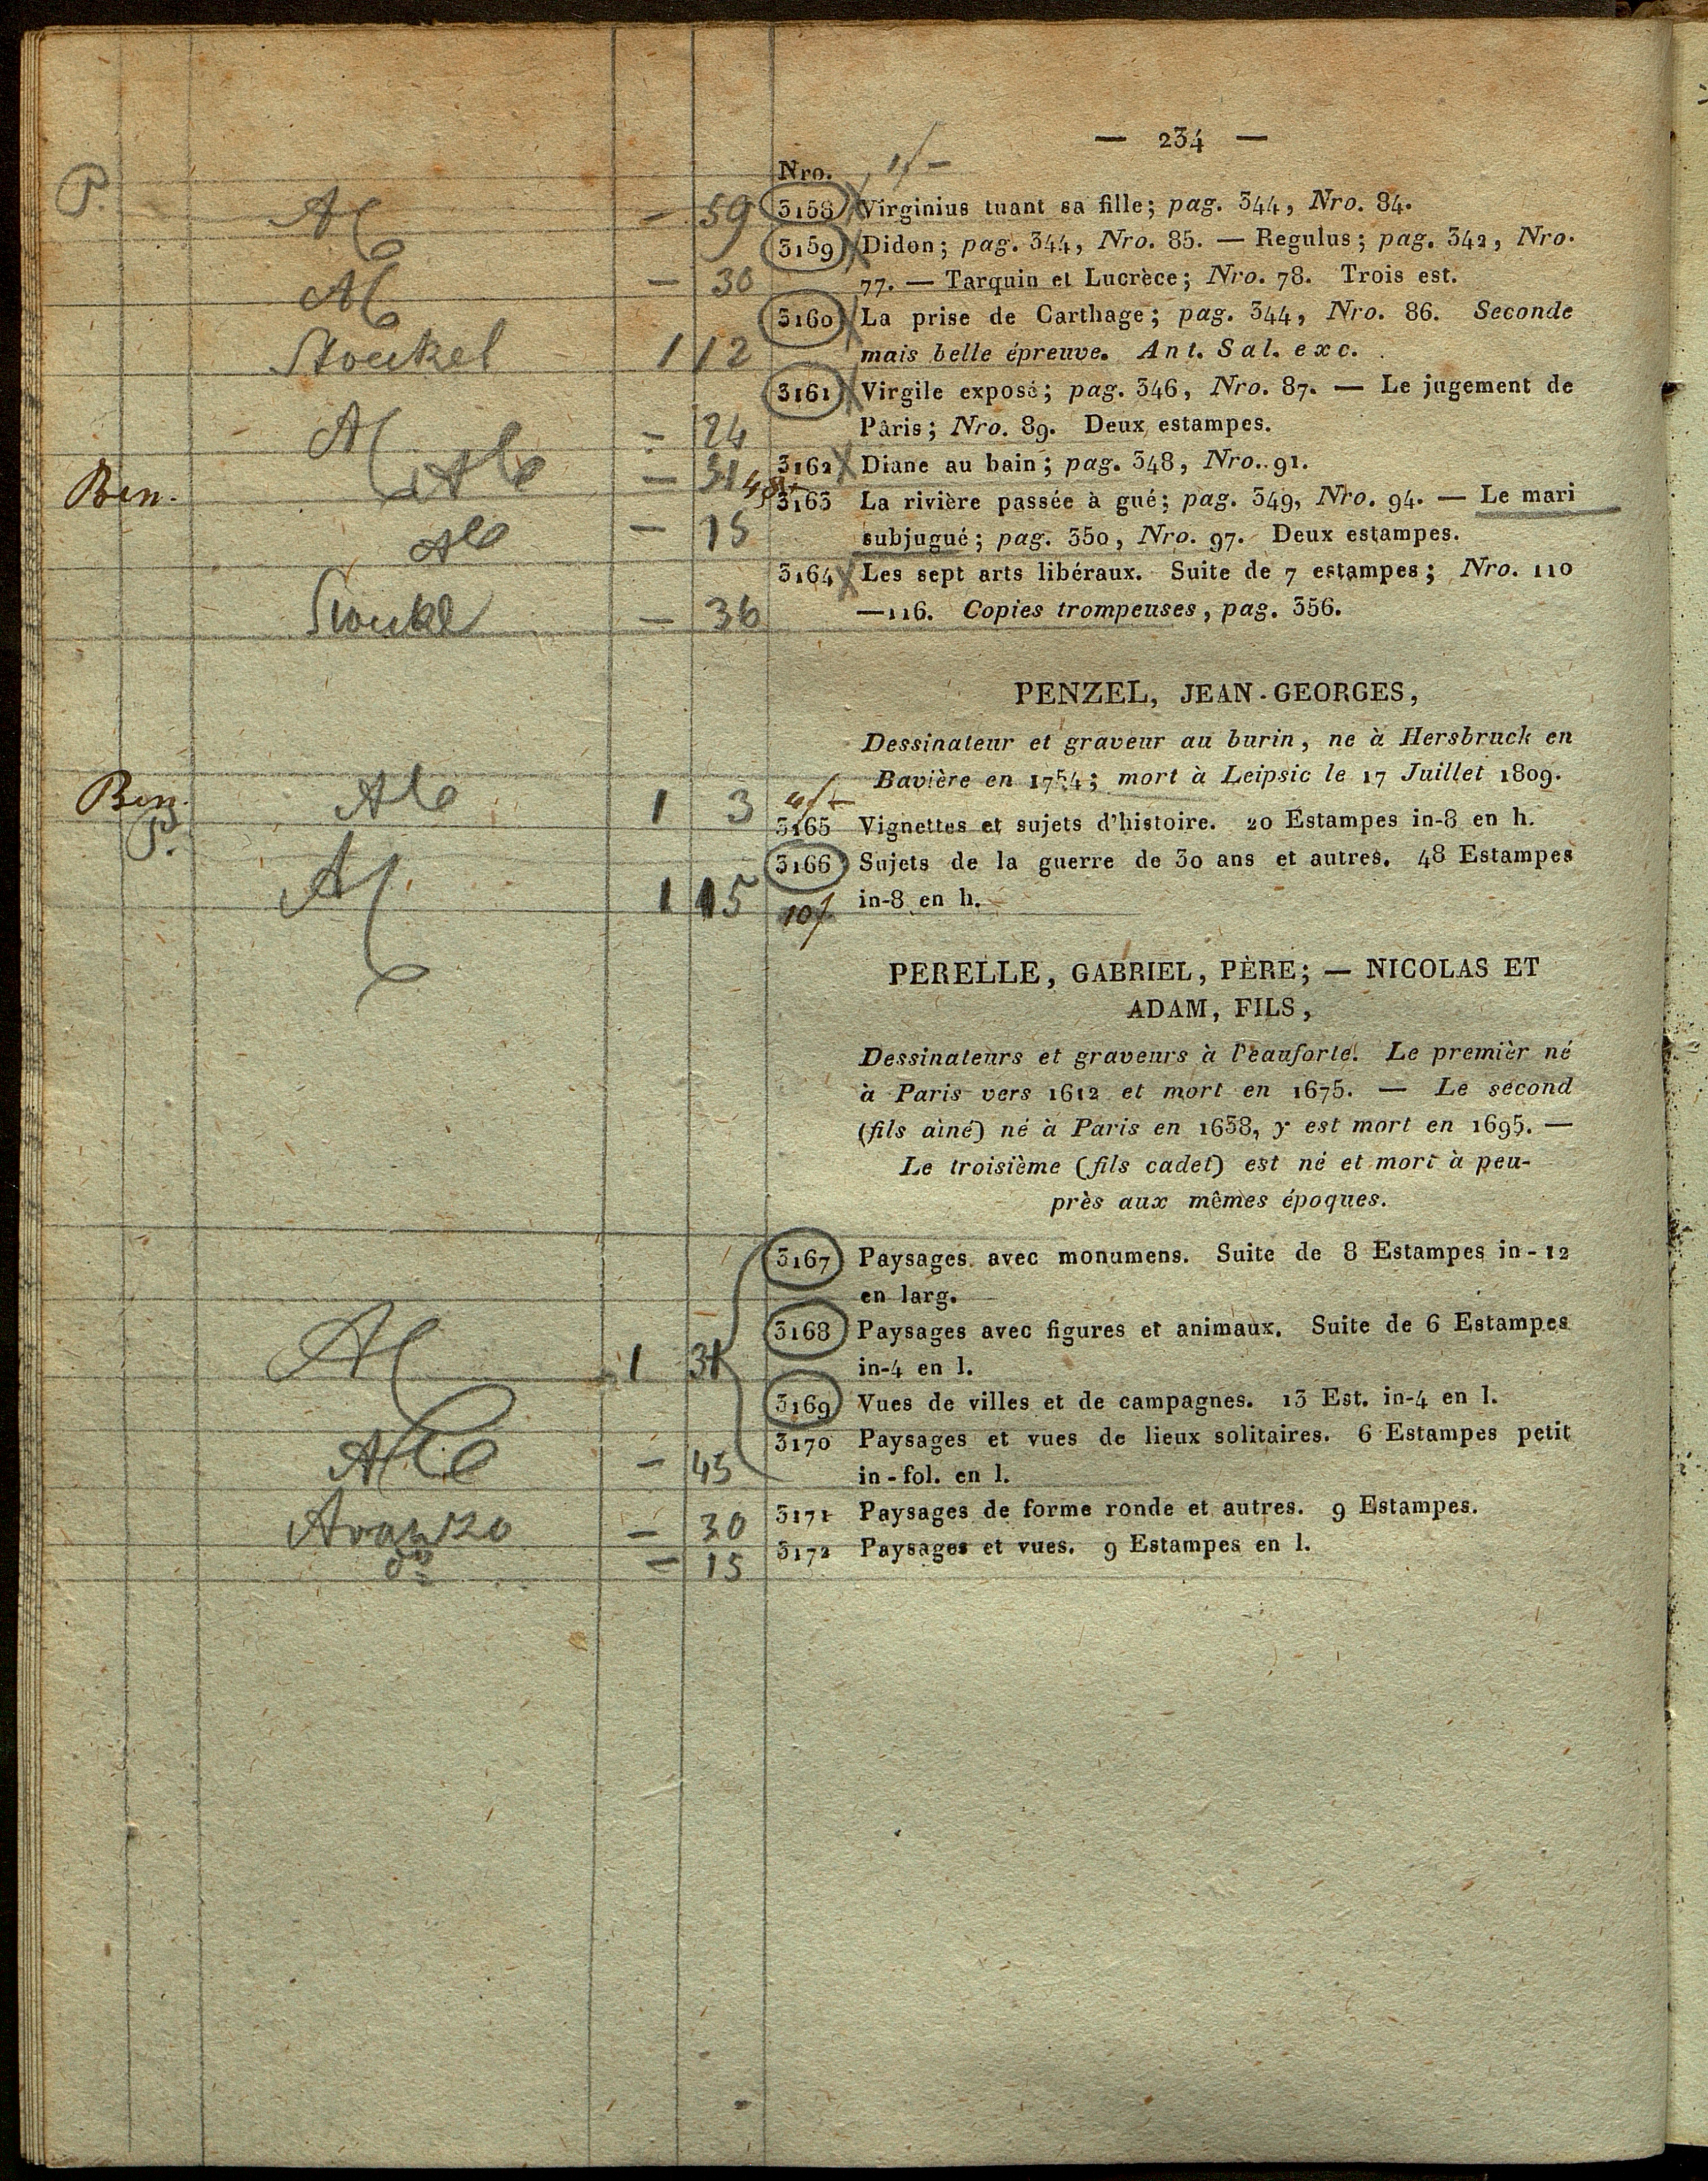 — 234 —
Nro. 1f –
P. Al – 59 3158 Virginius tuant sa fille; pag. 344, Nro. 84.
3159 Didon; pag. 344, Nro. 85. — Regulus; pag. 342, Nro.
Al – 30 77. — Tarquin et Lucrèce; Nro. 78. Trois est.
3160 La prise de Carthage; pag. 344, Nro. 86. Seconde
Stoukel 1 12 mais belle épreuve. Ant. Sal. exc.
3161 Virgile exposé; pag. 346, Nro. 87. — Le jugement de
Al – 24 Pâris; Nro. 89. Deux estampes.
Alo – 31 3162 Diane au bain; pag. 348, Nro. 91.
Ben. 3163 La rivière passée à gué; pag. 349, Nro. 94. — Le mari
Alo – 15 subjugué; pag. 350, Nro. 97. Deux estampes.
3164 Les sept arts libéraux. Suite de 7 estampes; Nro. 110
– 36 —116. Copies trompeuses, pag. 356.
PENZEL, JEAN-GEORGES,
Dessinateur et graveur au burin, ne à Hersbruck en
Bavière en 1754; mort à Leipsic le 17 Juillet 1809.
Ben. Alo 1 3 3165 Vignettes et sujets d'histoire. 20 Estampes in-8 en h.
P. 3166 Sujets de la guerre de 30 ans et autres. 48 Estampes
Al 1 15 10f in-8 en h.
PERELLE, GABRIEL, PÈRE; — NICOLAS ET
ADAM, FILS,
Dessinateurs et graveurs à l'eauforte. Le premièr né
à Paris vers 1612 et mort en 1675. — Le second
(fils aîné) né à Paris en 1638, y est mort en 1695. —
Le troisième (fils cadet) est né et mort à peu-
près aux mêmes époques.
3167 Paysages avec monumens. Suite de 8 Estampes in-12
en larg.
3168 Paysages avec figures et animaux. Suite de 6 Estampes
Al 1 31 in-4 en l.
3169 Vues de villes et de campagnes. 13 Est. in-4 en l.
3170 Paysages et vues de lieux solitaires. 6 Estampes petit
Alo – 45 in-fol. en l.
– 30 3171 Paysages de forme ronde et autres. 9 Estampes.
do – 15 3172 Paysages et vues. 9 Estampes en l.